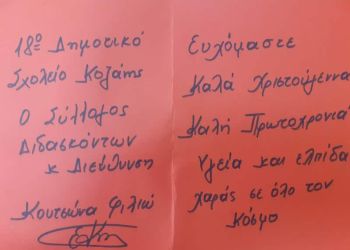 18ο Δημοτικό
Σχολείο Κοζάνης
Ο Σύλλογος
Διδασκόντων
κ Διεύθυνση
Κουτσώνα Φιλιώ
Ευχόμαστε
Καλά Χριστούγεννα
Καλή Πρωτοχρονιά
Υγεία και ελπίδα
χαράς σε όλο τον
Κόσμο